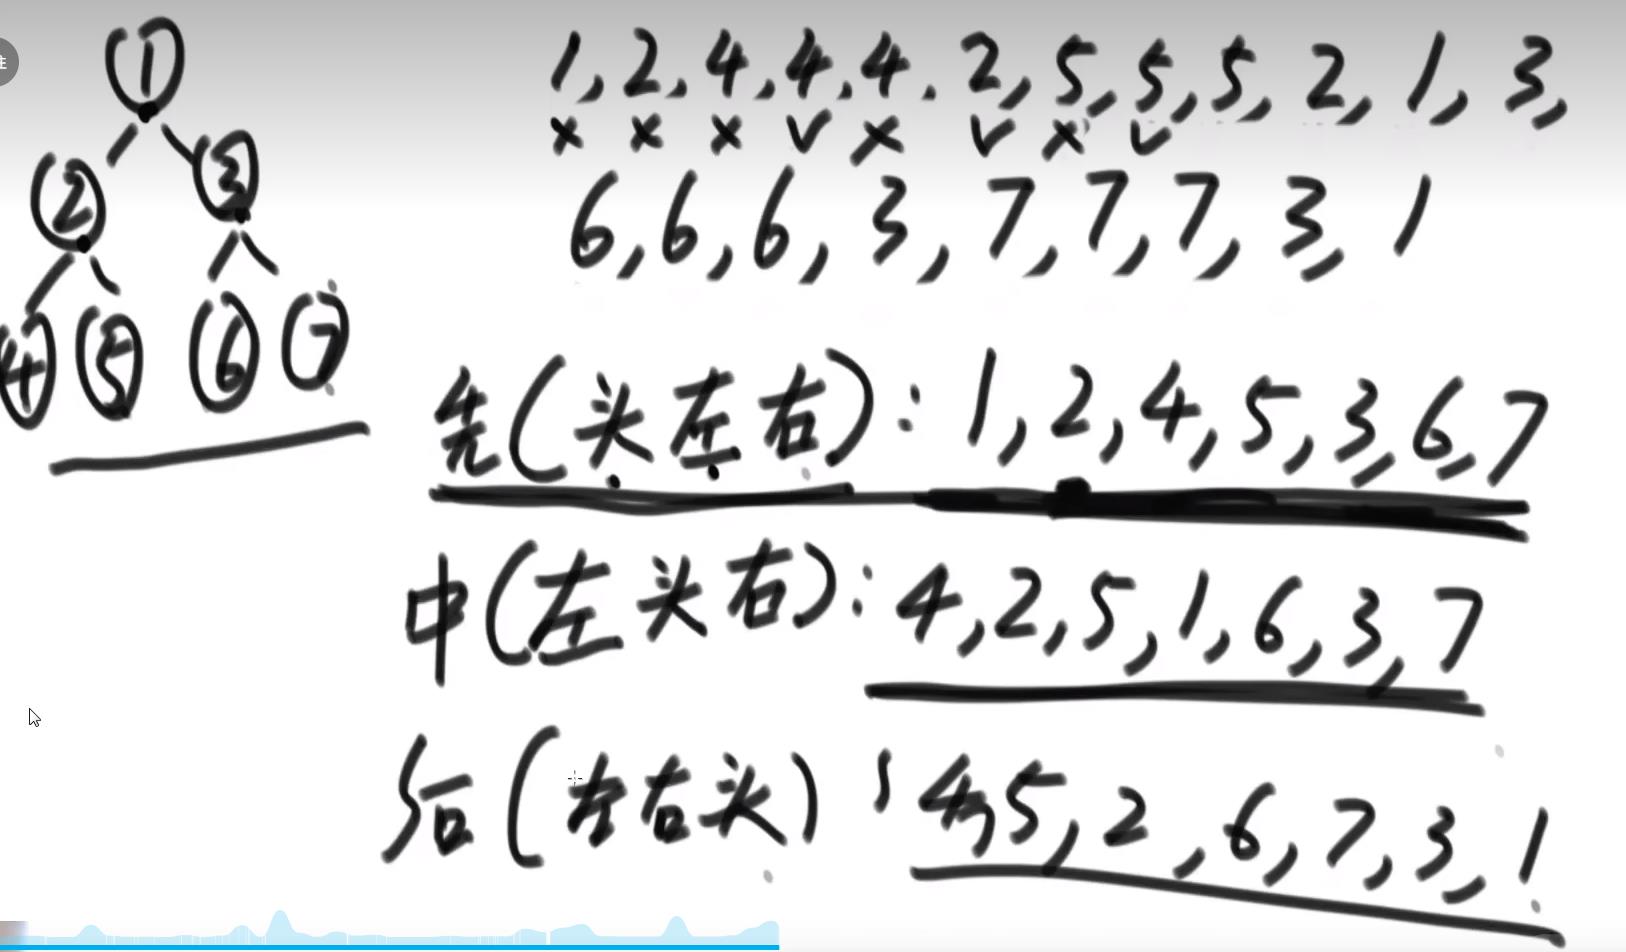 ①
② ③
④ ⑤ ⑥ ⑦
1,2,4,4,4,2,5,5,5,2,1,3,
× × × √ × √ × √
6,6,6,3,7,7,7,3,1
先(头左右):1,2,4,5,3,6,7
中(左头右):4,2,5,1,6,3,7
后(左右头):4,5,2,6,7,3,1